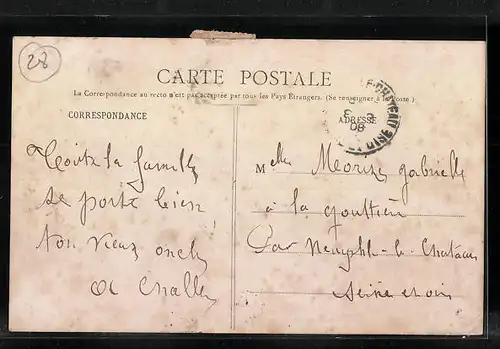 28
CARTE POSTALE
La Correspondance au recto n'est pas acceptée par tous les Pays Étrangers. (Se renseigner à la Poste.)
CORRESPONDANCE
ADRESSE
08
Toute la famille
se porte bien
ton vieux oncle
Mlle gabrielle
à la gouttière
Par neauphle-le-Chateau
Seine et oise